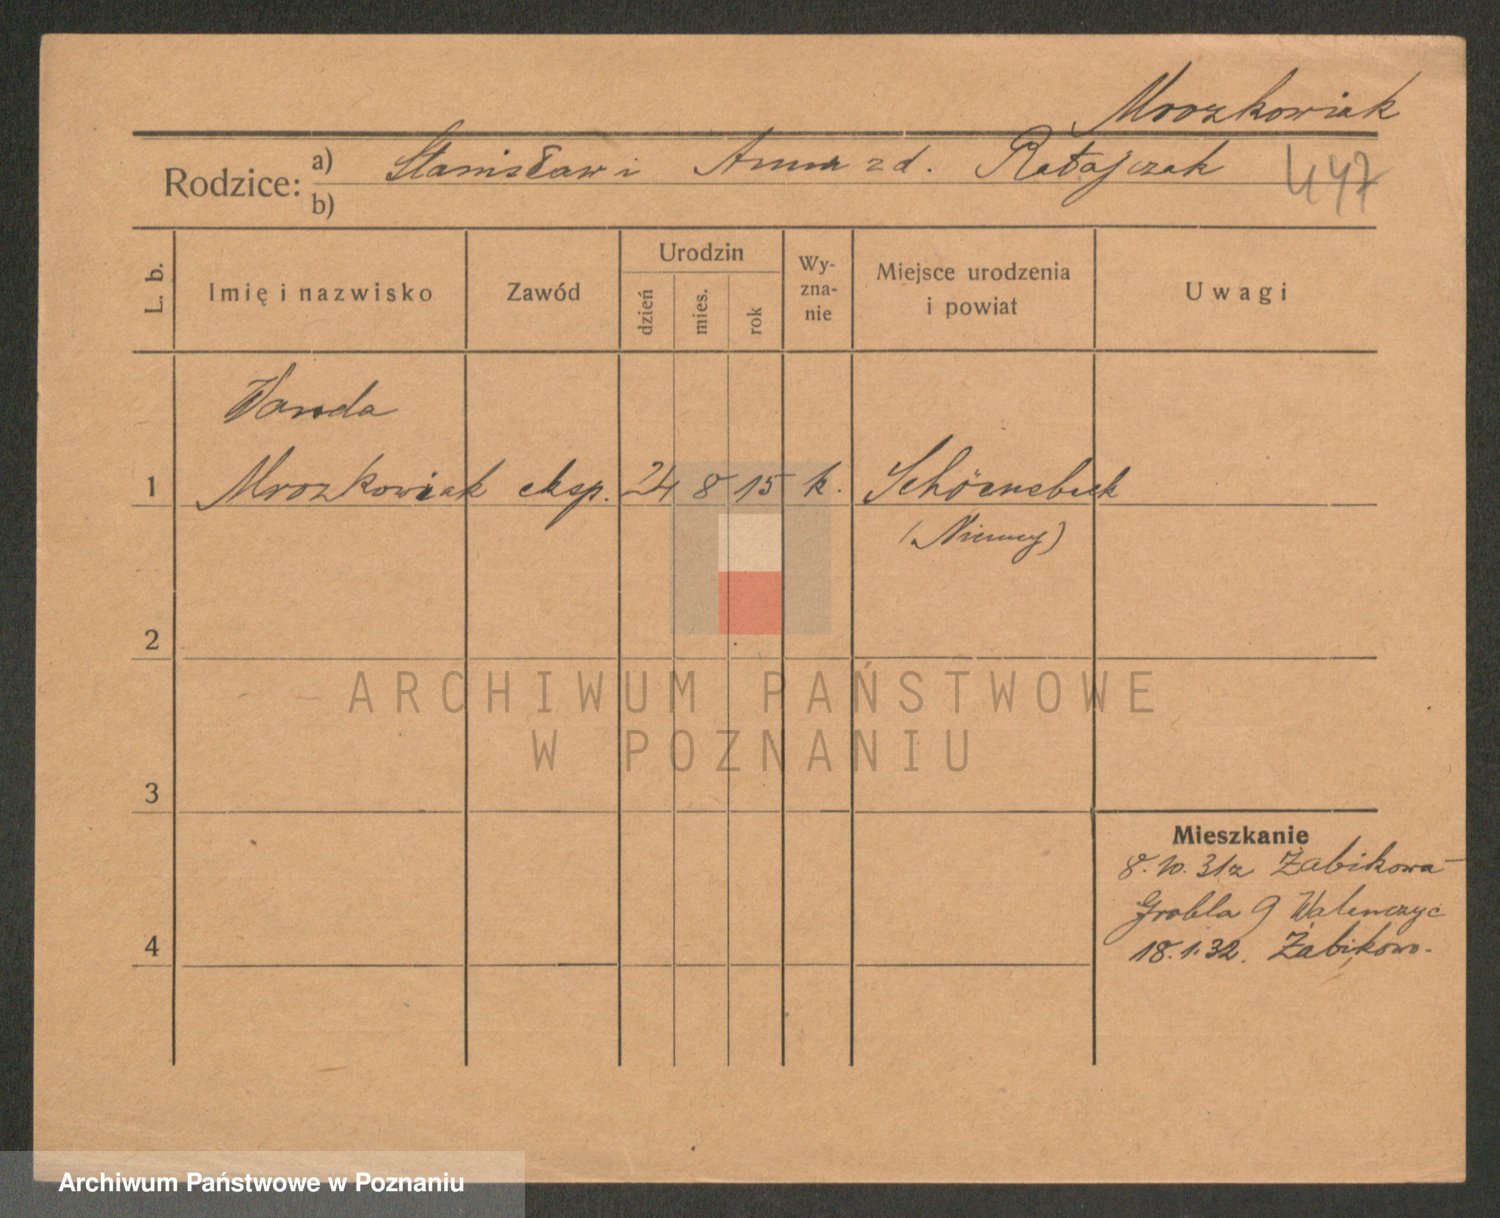 Mrozkowiak
Rodzice: a) Stanisław i Anna z d. Ratajczak
b)
447
L. b.
Imię i nazwisko
Zawód
Urodzin
dzień
mies.
rok
Wy-
zna-
nie
Miejsce urodzenia
i powiat
Uwagi
Wanda
1 Mrozkowiak eksp. 24 8 15 k. Schönebeck
(Niemcy)
2
ARCHIWUM PAŃSTWOWE
W POZNANIU
3
Mieszkanie
8.10.31 z Żabikowa
Grobla 9 Walenczyc
4
18.1.32. Żabikowo.
Archiwum Państwowe w Poznaniu